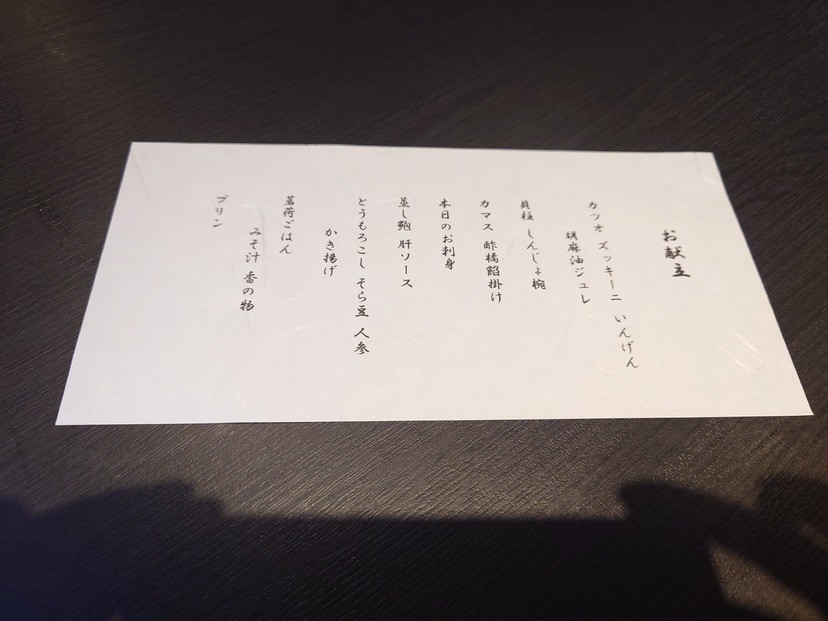 お献立
カツオ ズッキーニ いんげん
胡麻油ジュレ
貝柱 しんじょ椀
カマス 酢橘餡掛け
本日のお刺身
蒸し鮑 肝ソース
とうもろこし そら豆 人参
かき揚げ
茗荷ごはん
みそ汁 香の物
プリン